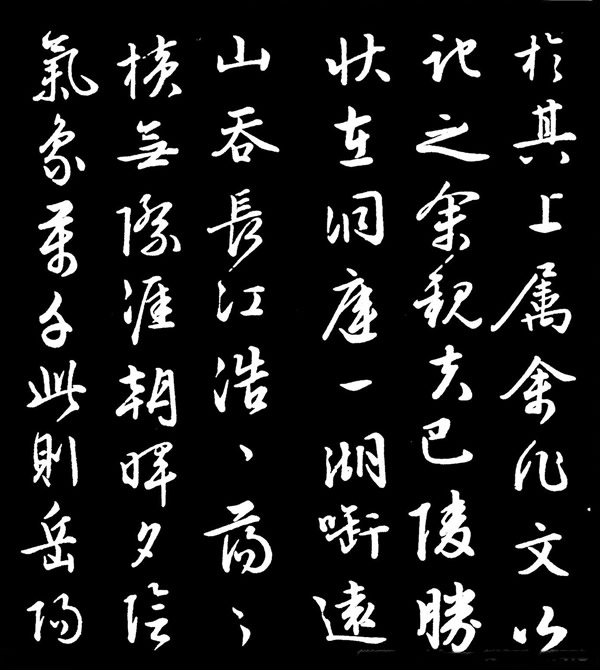 於其上属余作文以
記之余觀夫巴陵勝
狀在洞庭一湖啣遠
山吞長江浩〻蕩〻
橫無際涯朝暉夕陰
氣象萬千此則岳陽